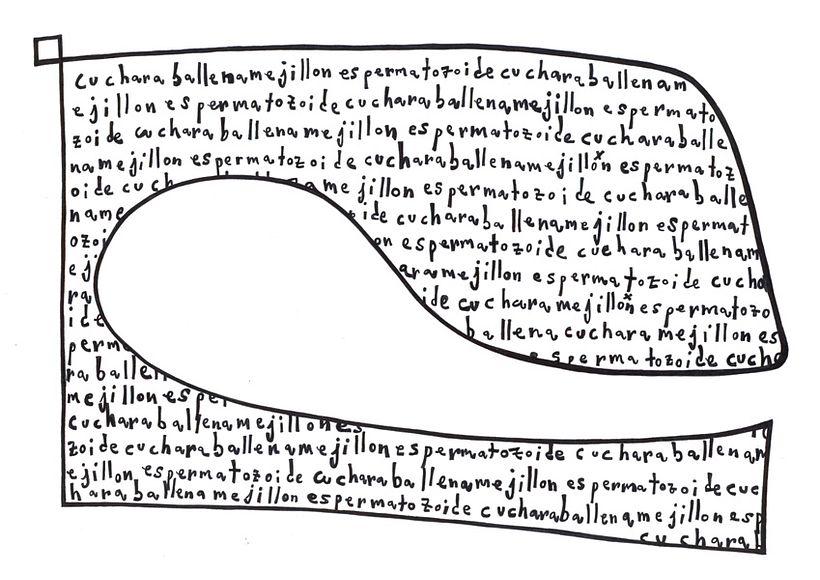 cuchara ballenamejillon espermatozoide cucharaballenam
ejillon espermatozoide cucharaballenamejillon espermato
zoide cucharaballenamejillon espermatozoide cucharaballe
namejillon espermatozoide cucharaballenamejillon espermatoz
oide cuch ame jillon espermatozoide cucharaballe
name ide cucharaballenamejillon espermat
ozoi on espermatozoide cucharaballenam
eji aramejillon espermatozoide cucha
ra ide cucharamejillon espermatozo
ide ballenacucharamejillon es
perm espermatozoide cucha
raballen
mejillonesper
cucharaballenamejillones
zoide cucharaballenamejillonespermatozoide cucharaballenam
ejillon espermatozoide cucharaballenamejillon espermatozoidecuc
haraballenamejillon espermatozoide cucharaballenamejillonesp
cuchara